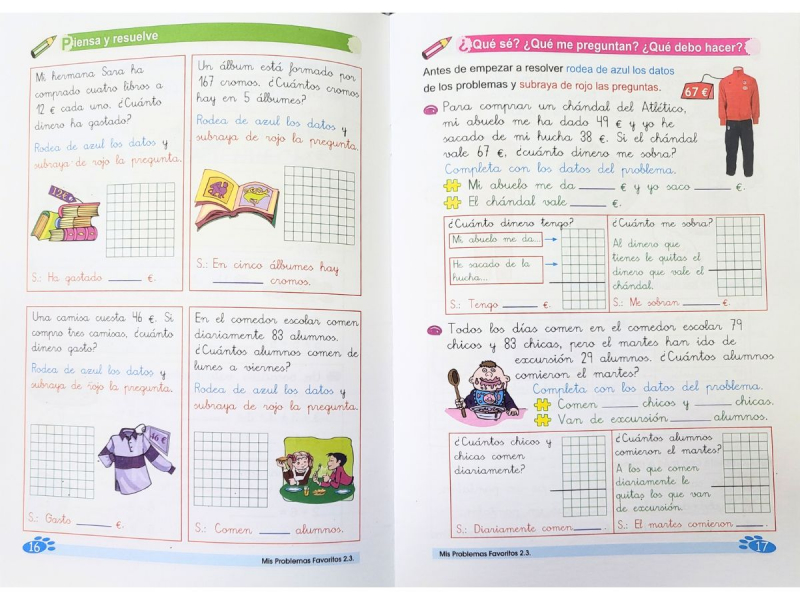 Piensa y resuelve
Mi hermana Sara ha
comprado cuatro libros a
12 € cada uno. ¿Cuánto
dinero ha gastado?
Rodea de azul los datos y
subraya de rojo la pregunta.
12 €
S.: Ha gastado ______ €.
Un álbum está formado por
167 cromos. ¿Cuántos cromos
hay en 5 álbumes?
Rodea de azul los datos y
subraya de rojo la pregunta.
S.: En cinco álbumes hay
______ cromos.
Una camisa cuesta 46 €. Si
compro tres camisas, ¿cuánto
dinero gasto?
Rodea de azul los datos y
subraya de rojo la pregunta.
46 €
S.: Gasto ______ €.
En el comedor escolar comen
diariamente 83 alumnos.
¿Cuántos alumnos comen de
lunes a viernes?
Rodea de azul los datos y
subraya de rojo la pregunta.
S.: Comen ______ alumnos.
16
Mis Problemas Favoritos 2.3.
¿Qué sé? ¿Qué me preguntan? ¿Qué debo hacer?
Antes de empezar a resolver rodea de azul los datos
de los problemas y subraya de rojo las preguntas.
67 €
Para comprar un chándal del Atlético,
mi abuelo me ha dado 49 € y yo he
sacado de mi hucha 38 €. Si el chándal
vale 67 €, ¿cuánto dinero me sobra?
Completa con los datos del problema.
Mi abuelo me da ______ € y yo saco ______ €.
El chándal vale ______ €.
¿Cuánto dinero tengo?
Mi abuelo me da...
He sacado de la
hucha...
S.: Tengo ______ €.
¿Cuánto me sobra?
Al dinero que
tienes le quitas el
dinero que vale el
chándal.
S.: Me sobran ______ €.
Todos los días comen en el comedor escolar 79
chicos y 83 chicas, pero el martes han ido de
excursión 29 alumnos. ¿Cuántos alumnos
comieron el martes?
Completa con los datos del problema.
Comen ______ chicos y ______ chicas.
Van de excursión ______ alumnos.
¿Cuántos chicos y
chicas comen
diariamente?
S.: Diariamente comen ______.
¿Cuántos alumnos
comieron el martes?
A los que comen
diariamente le
quitas los que van
de excursión.
S.: El martes comieron ______.
Mis Problemas Favoritos 2.3.
17